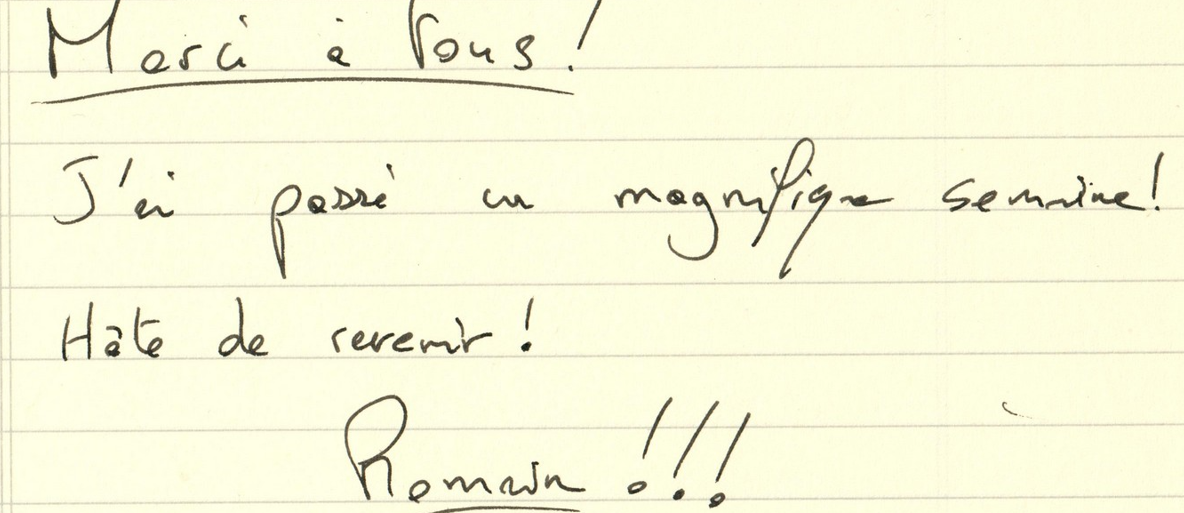 Merci à Vous !
J'ai passé un magnifique semaine !
Hâte de revenir !
Romain !!!